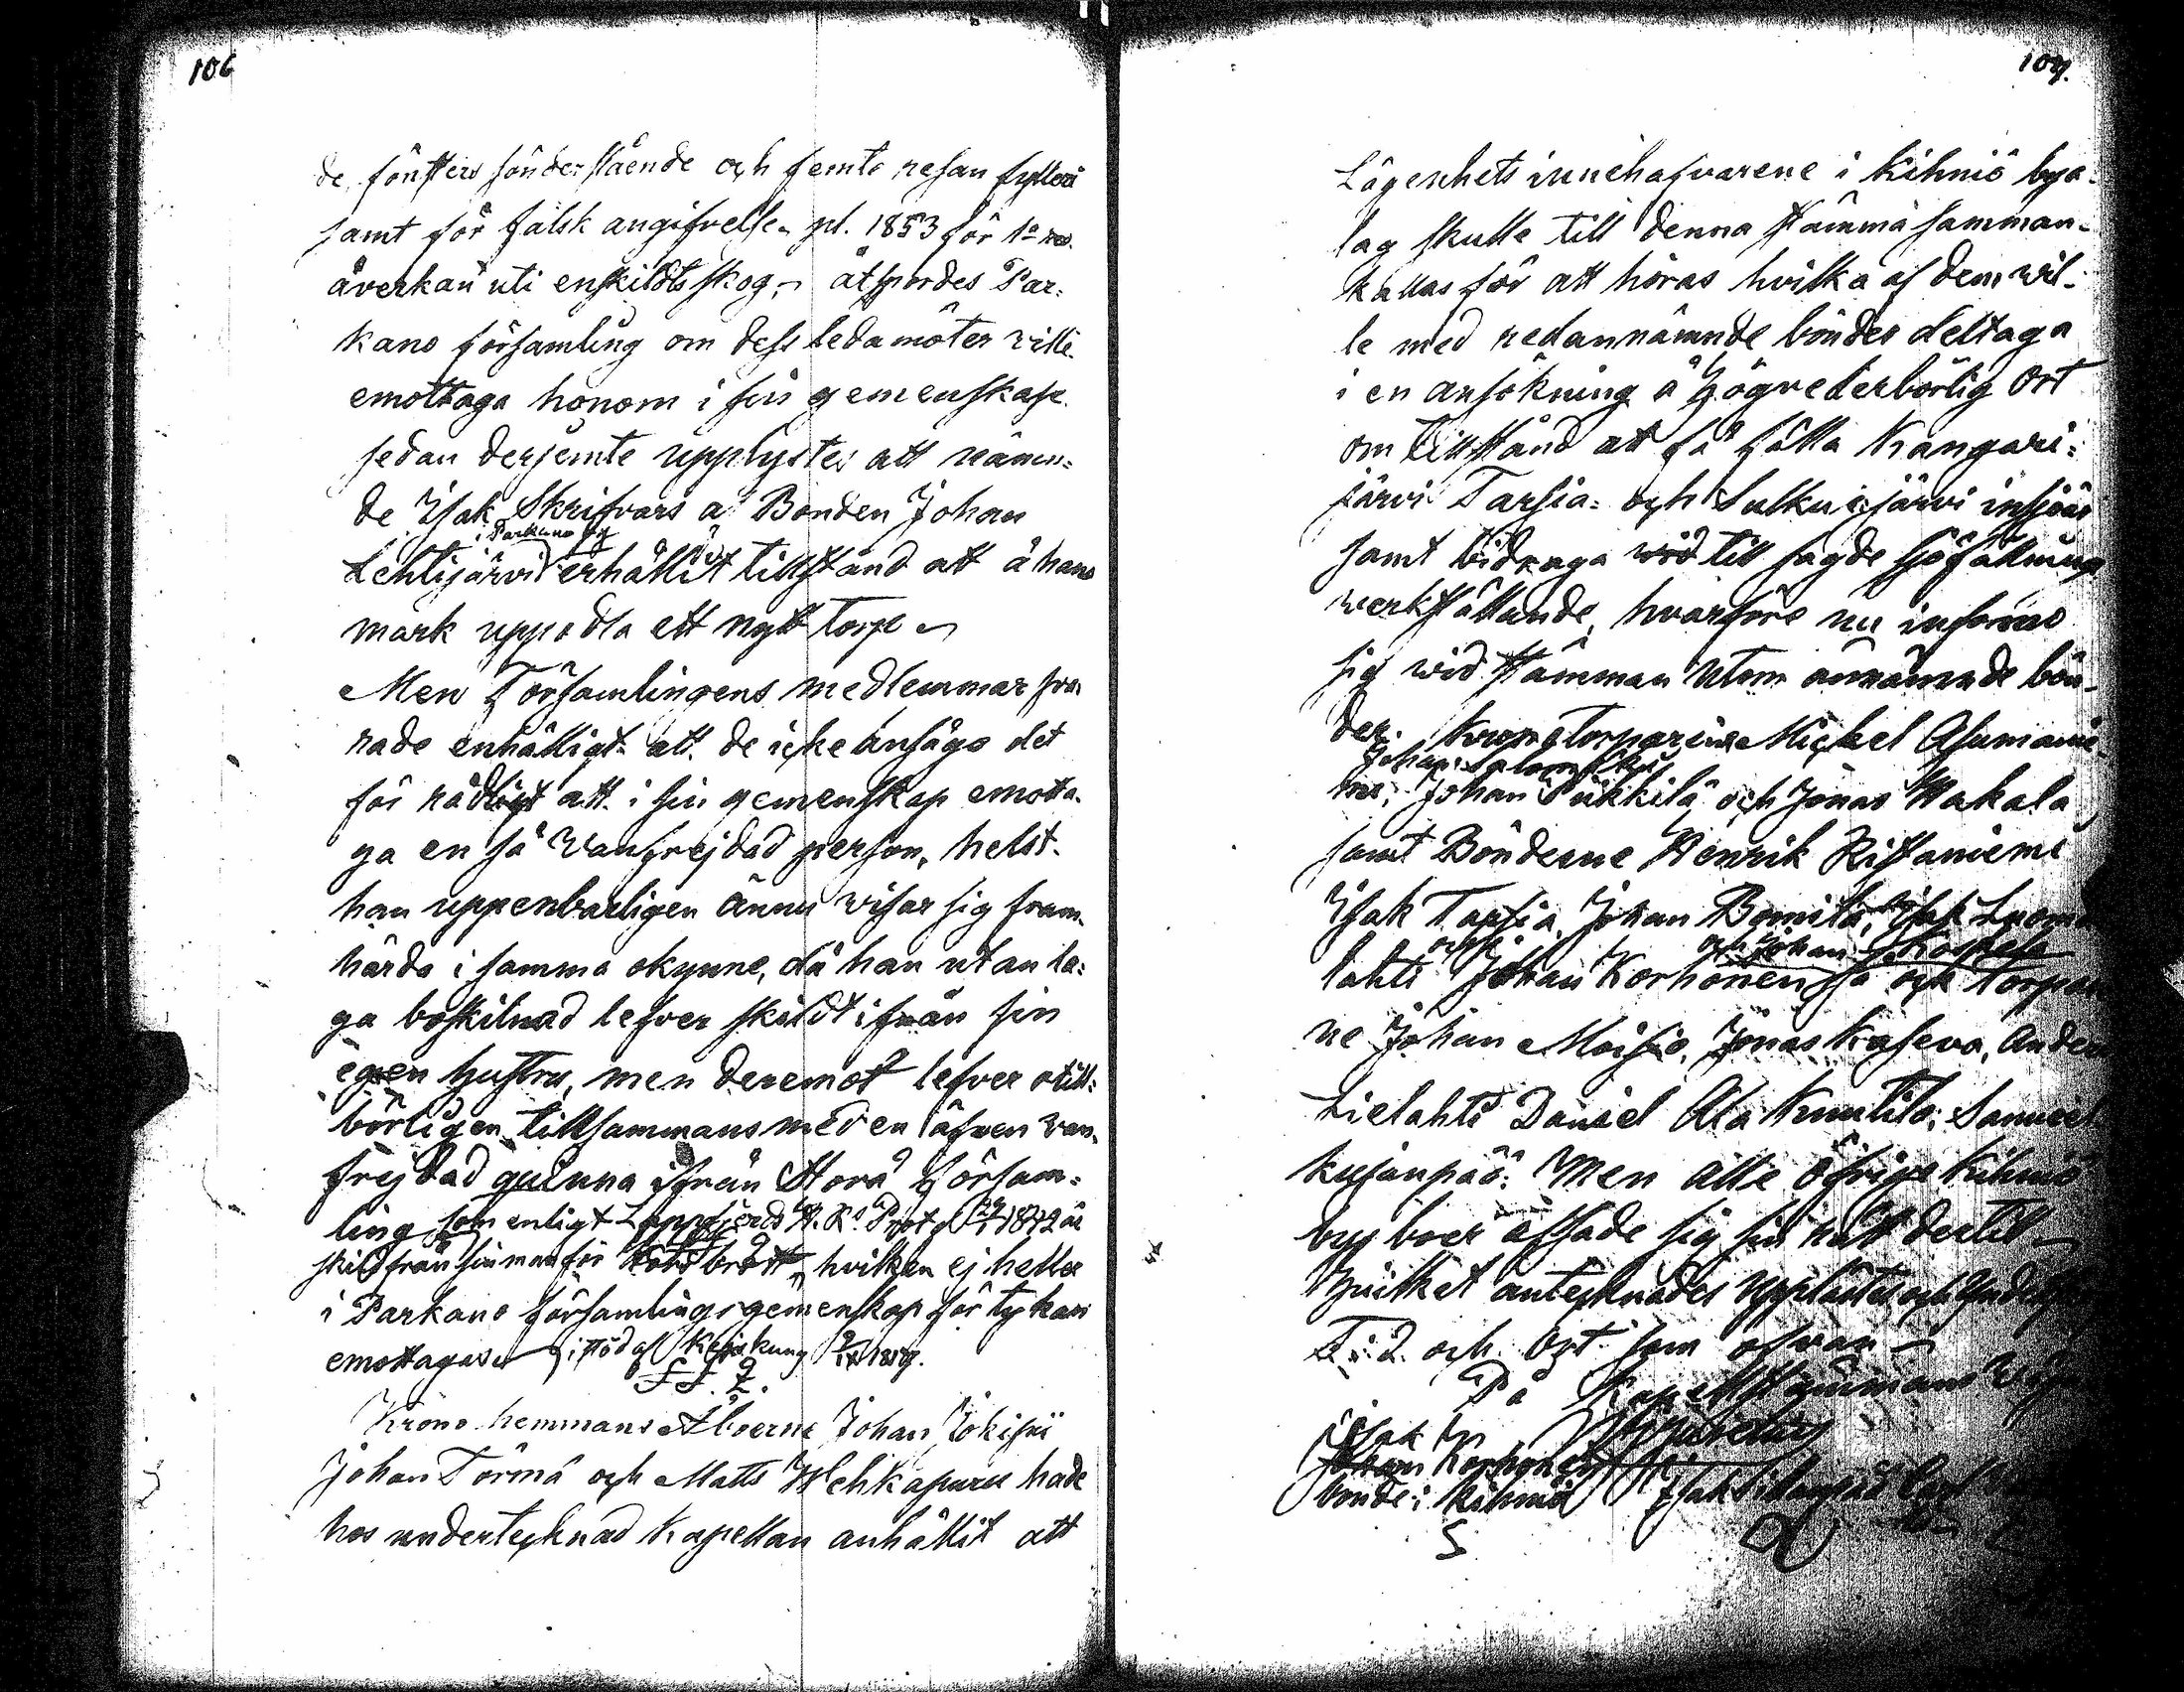 106
de fönsters sönderslående och femte resan fylleri
samt för falsk angifvelse, pl. 1853 för 1a res.
åverkan uti enskildts skog, åtspordes Par-
kano församling om dess ledamöter wille
emottaga honom i sin gemenskap
sedan derjemte upplystes att nämn-
de Isak Skrifvars a Bonden Johan
i Parkano by
Lehtijärvi erhållit tillstånd att å hans
mark uppodla ett nytt Torp
Men Församlingens medlemmar sva
rade enhälligt att de icke ansågo det
för rådligt att i sin gemenskap emotta-
ga en så wanfrejdad person, helst
han uppenbarligen ännu wisar sig fram-
härda i samma okynne, då han utan la-
ga boskilnad lefver skildt ifrån sin
egen hustru, men deremot lefver otill-
börligen tillsammans med en äfwen van-
frejdad quinna ifrån Storå Försam-
ling som enligt Lappfjerds K. Rs Prot. 1842 är
skild från sin man för brott, hvilken ej heller
i Parkano församlings gemenskap för ty kan
emottagas i stöd af Kejs. kung.
§ 2.
Krono hemmans Åboerne Johan Jokipii
Johan Törmä och Matts Wehkapuru hade
hos undertecknad Kapellan anhållit att
107.
Lägenhets innehafvarene i Kihniö bya-
lag skulle till denna stämma samman-
kallas för att höras hvilka af dem wil-
le med redannämnde bönder deltaga
i en ansökning å högvederbörlig Ort
om tillstånd att få fälla Kangari-
järvi Tarsia- och Sulkujärvi insjöar
samt bidraga wid till sagde sjöfällning
werkställande, hvarföre nu informe
sig wid stämman utom omnämnde bön-
der. Kronotorparene Michel Asumanie-
mi, Johan Pukkila och Jonas Wakala
samt Bönderne Henrik Ristaniemi
Isak Tarsia, Johan Bomila, Isak Luoma
och Johan Koskela
lahti Johan Korhonen så ock Torpar
ne Johan Moisio, Jonas Kaseva, Anders
Lielahti Daniel Ala Knuutila, Samuel
Kujanpää: Men alle öfrige Kihniö
by boer afsade sig sin rätt dertil
hvilket antecknades upplästes och
T. d. och Ort som ofvan
På Kapellstämmans
Isak
Johan Korhonen
bonde i Kihniö